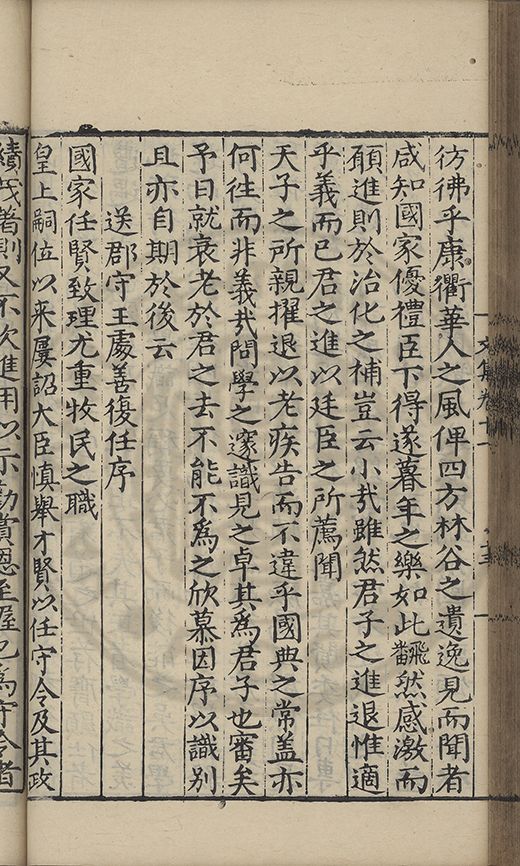 彷彿乎康衢華人之風俾四方林谷之遺逸見而聞者
咸知國家優禮臣下得遂暮年之樂如此飜然感激而
願進則於治化之補豈云小㢤雖然君子之進退惟適
乎義而已君之進以廷臣之所薦聞
天子之所親擢退以老疾告而不違乎國典之常盖亦
何往而非義㢤問學之邃識見之卓其為君子也審矣
予曰就衰老於君之去不能不為之欣慕因序以識別
且亦自期於後云
送郡守王處善復任序
國家任賢致理尤重牧民之職
皇上嗣位以来屢詔大臣慎舉才賢以任守令及其政
績茂者則又不次進用以示勸賞恩至渥也為守令者